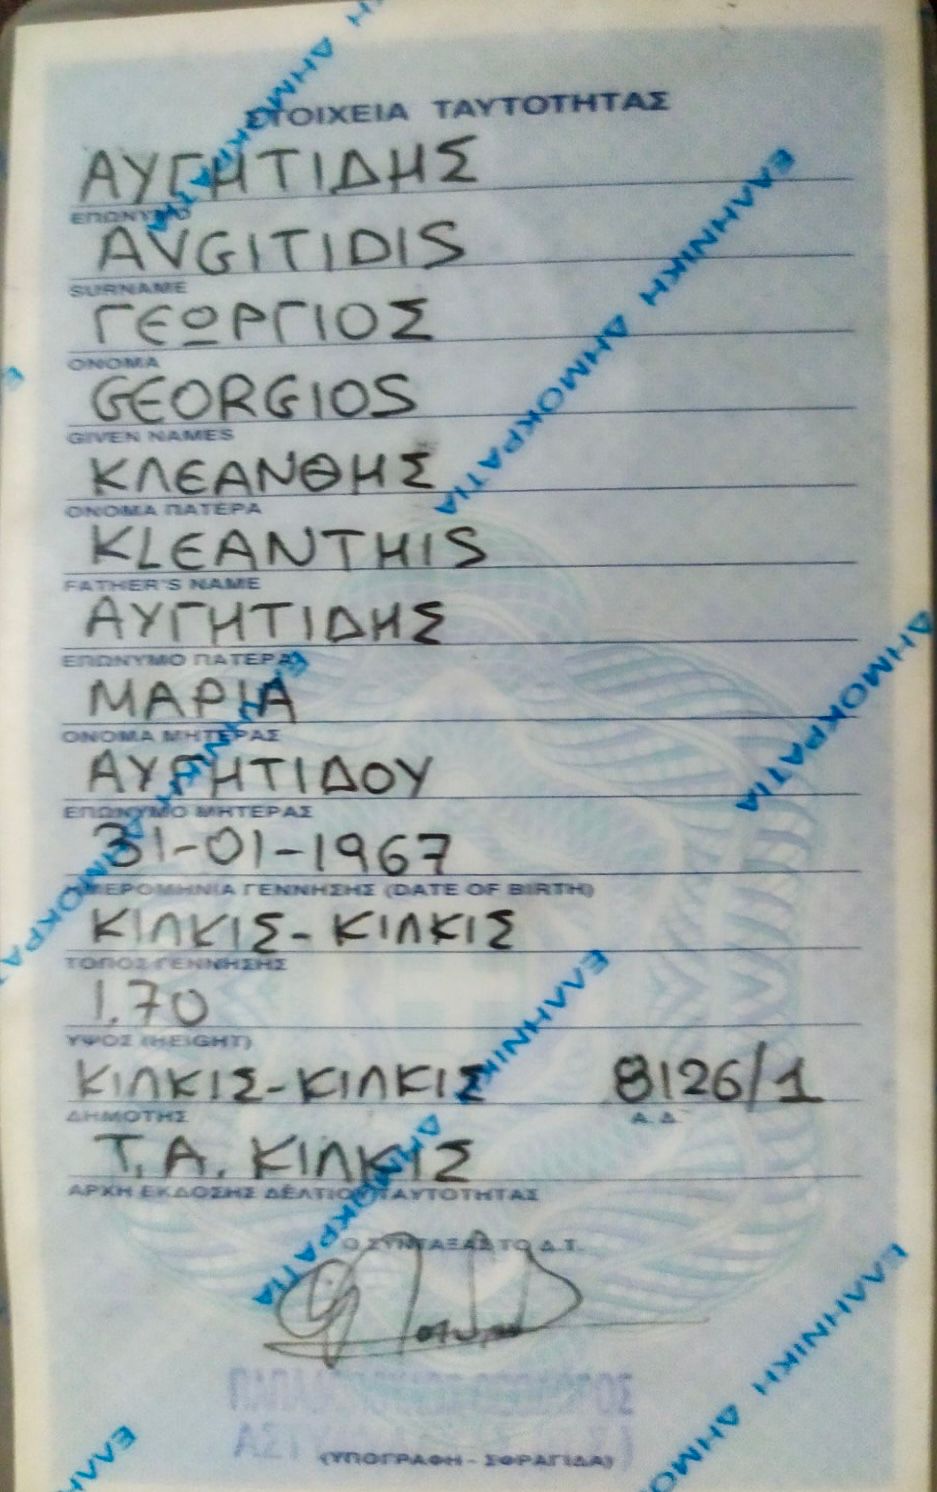 ΣΤΟΙΧΕΙΑ ΤΑΥΤΟΤΗΤΑΣ
ΑΥΓΗΤΙΔΗΣ
ΕΠΩΝΥΜΟ
AVGITIDIS
SURNAME
ΓΕΩΡΓΙΟΣ
ΟΝΟΜΑ
GEORGIOS
GIVEN NAMES
ΚΛΕΑΝΘΗΣ
ΟΝΟΜΑ ΠΑΤΕΡΑ
KLEANTHIS
FATHER'S NAME
ΑΥΓΗΤΙΔΗΣ
ΕΠΩΝΥΜΟ ΠΑΤΕΡΑ
ΜΑΡΙΑ
ΟΝΟΜΑ ΜΗΤΕΡΑΣ
ΑΥΓΗΤΙΔΟΥ
ΕΠΩΝΥΜΟ ΜΗΤΕΡΑΣ
31-01-1967
ΗΜΕΡΟΜΗΝΙΑ ΓΕΝΝΗΣΗΣ (DATE OF BIRTH)
ΚΙΛΚΙΣ-ΚΙΛΚΙΣ
ΤΟΠΟΣ ΓΕΝΝΗΣΗΣ
1.70
ΥΨΟΣ (HEIGHT)
ΚΙΛΚΙΣ-ΚΙΛΚΙΣ 8126/1
ΔΗΜΟΤΗΣ Α.Δ.
Τ.Α. ΚΙΛΚΙΣ
ΑΡΧΗ ΕΚΔΟΣΗΣ ΔΕΛΤΙΟΥ ΤΑΥΤΟΤΗΤΑΣ
Ο ΣΥΝΤΑΞΑΣ ΤΟ Δ.Τ.
(ΥΠΟΓΡΑΦΗ - ΣΦΡΑΓΙΔΑ)
ΕΛΛΗΝΙΚΗ ΔΗΜΟΚΡΑΤΙΑ
ΕΛΛΗΝΙΚΗ ΔΗΜΟΚΡΑΤΙΑ
ΕΛΛΗΝΙΚΗ ΔΗΜΟΚΡΑΤΙΑ